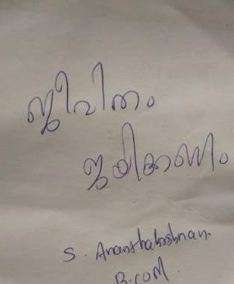 ജീവിതം
ജയിക്കണം
S. Ananthakrishnan
B.com